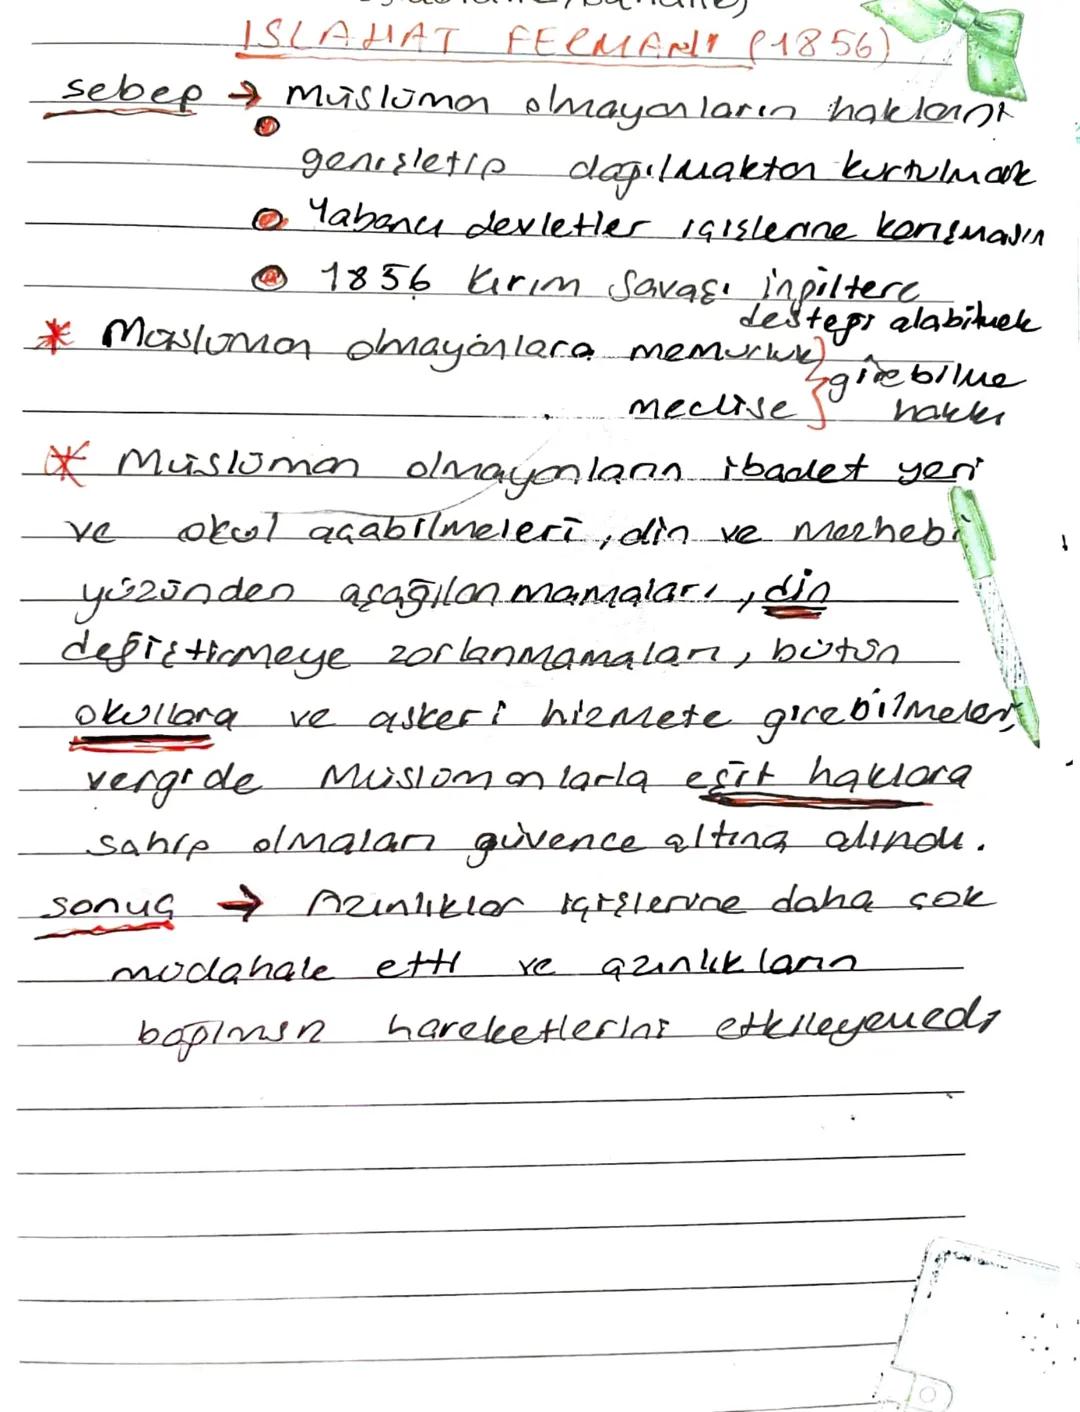 ISLAHAT FERMANI (1856)
sebep → Müslüman olmayanların haklarını
genişletip dağılmaktan kurtulmak
Yabancı devletler içişlerine karışmasın
1856 Kırım Savaşı İngiltere
desteği alabilmek
* Müslüman olmayanlara memurluk
girebilme
meclise hakkı
* Müslüman olmayanların ibadet yeri
ve okul açabilmeleri, din ve mezhebi
yüzünden aşağılanmamaları, din
değiştirmeye zorlanmamaları, bütün
okullara ve askeri hizmete girebilmeleri,
vergide Müslümanlarla eşit haklara
sahip olmaları güvence altına alındı.
sonuç → Azınlıklar içişlerine daha çok
müdahale etti ve azınlıkların
bağımsız hareketlerini etkileyemedi